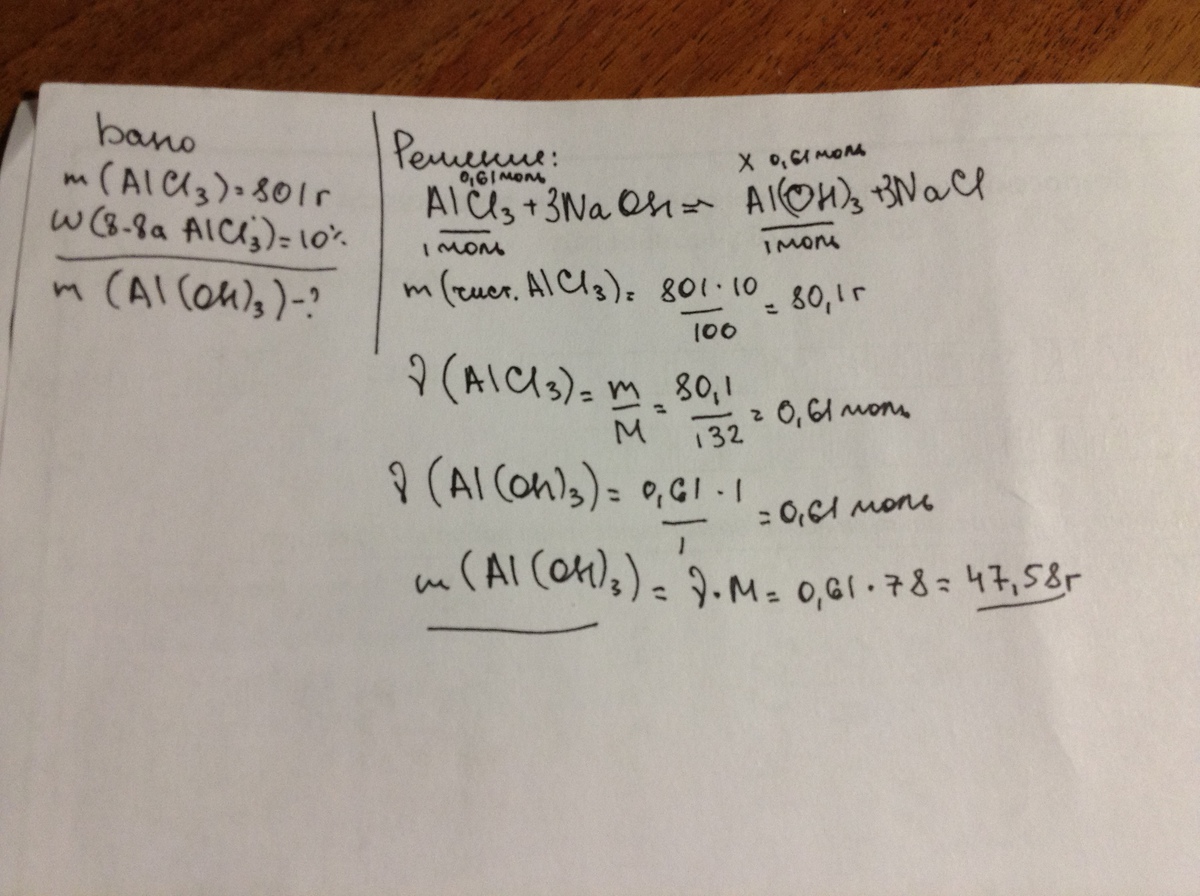 Дано
m (AlCl3) = 801 г
w (в-ва AlCl3) = 10%
m (Al(OH)3) - ?
Решение:
0,61 моль x 0,61 моль
AlCl3 + 3NaOH = Al(OH)3 + 3NaCl
1 моль 1 моль
m (чист. AlCl3) = 801 · 10 / 100 = 80,1 г
ν (AlCl3) = m / M = 80,1 / 132 = 0,61 моль
ν (Al(OH)3) = 0,61 · 1 / 1 = 0,61 моль
m (Al(OH)3) = ν · M = 0,61 · 78 = 47,58 г